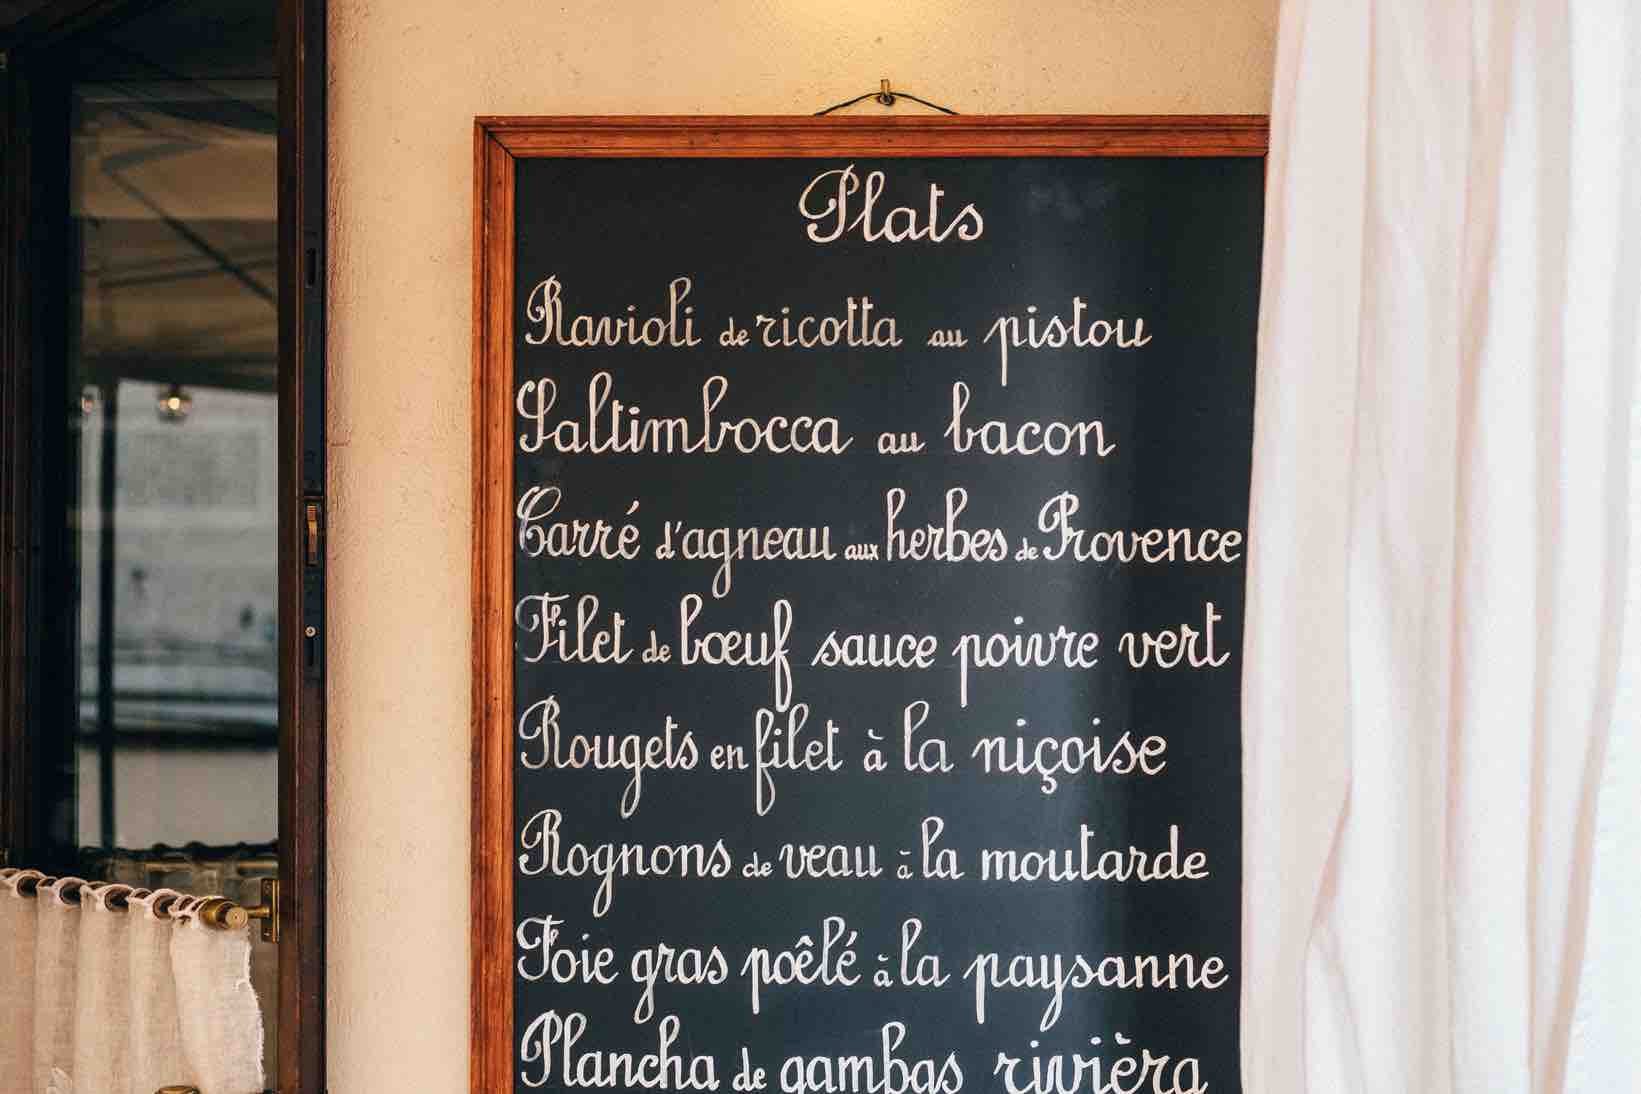 Plats
Ravioli de ricotta au pistou
Saltimbocca au bacon
Carré d'agneau aux herbes de Provence
Filet de bœuf sauce poivre vert
Rougets en filet à la niçoise
Rognons de veau à la moutarde
Foie gras pôêlé à la paysanne
Plancha de gambas rivièra